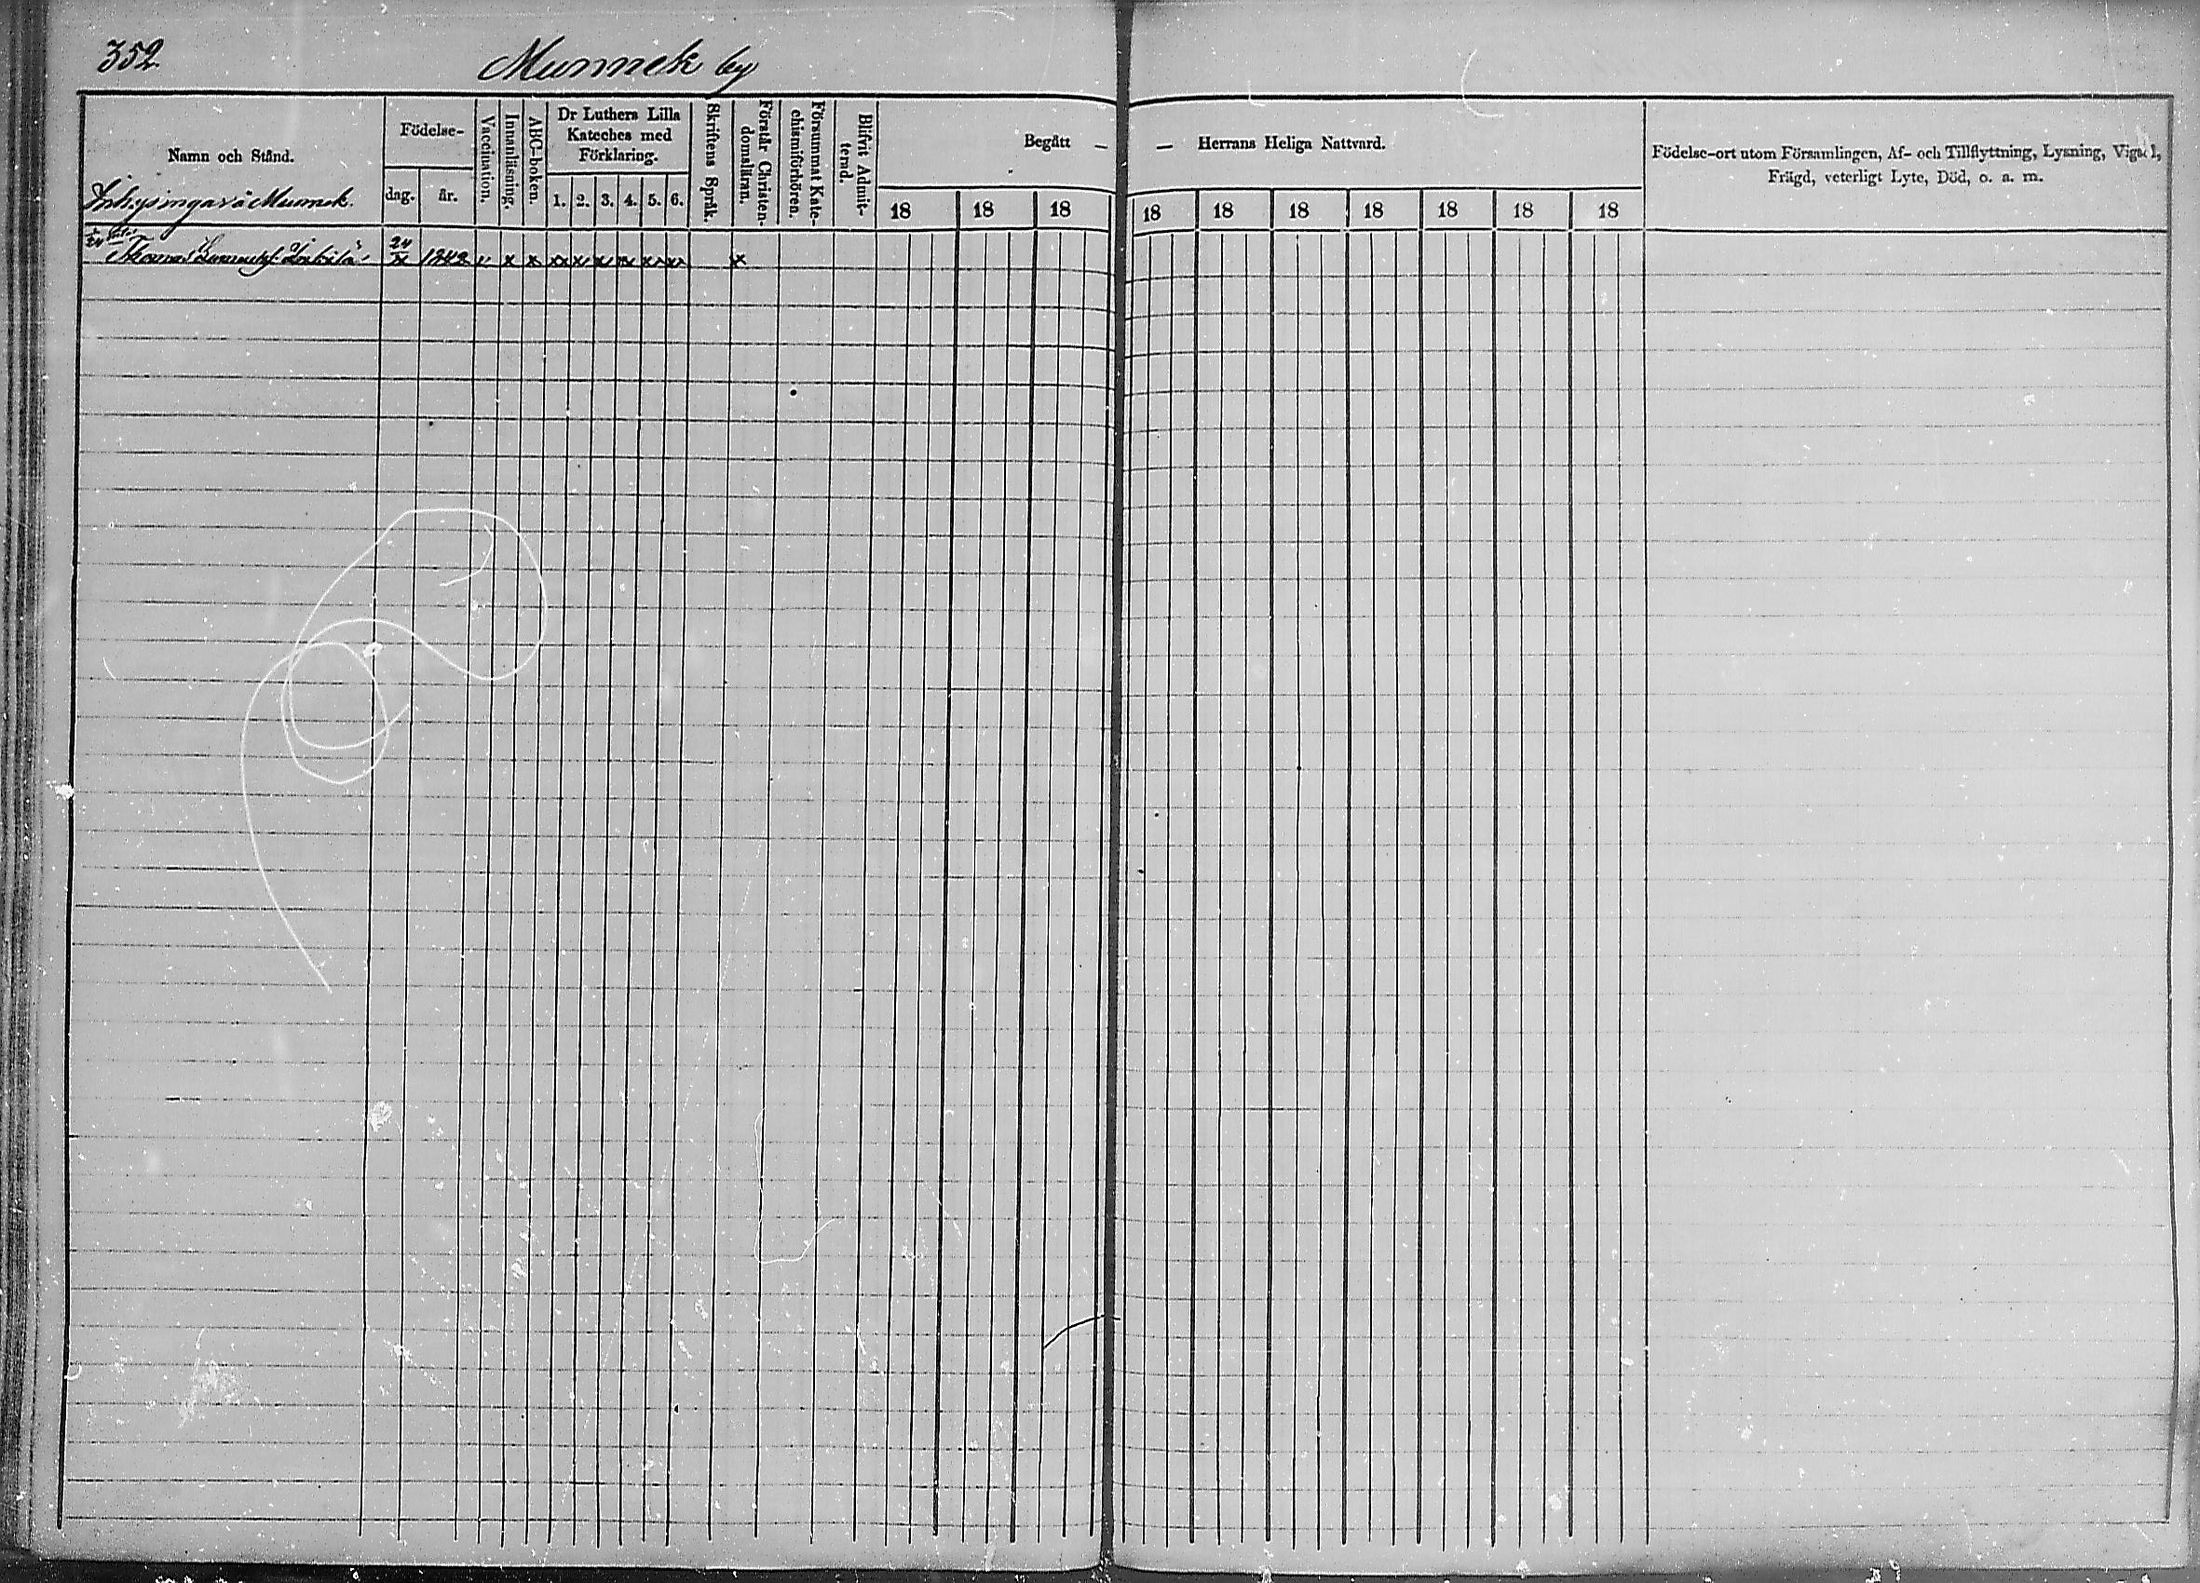 352.
Munnek by
Namn och Stånd.
Födelse-
dag.
år.
Vaccination.
Innanläsning.
ABC-boken.
Dr Luthers Lilla
Kateches med
Förklaring.
1. 2. 3. 4. 5. 6.
Skriftens Språk.
Förstår Christen-
domsläran.
Försummat Kate-
chismiförhören.
Blifvit Admit-
terad.
Begått — — Herrans Heliga Nattvard.
18 18 18 18 18 18 18 18 18 18
Födelse-ort utom Församlingen, Af- och Tillflyttning, Lysning, Vigsel,
Frägd, veterligt Lyte, Död, o. a. m.
Inhysingar å Munnek.
Thomas 24/X 1842 " x x x x x x x x x